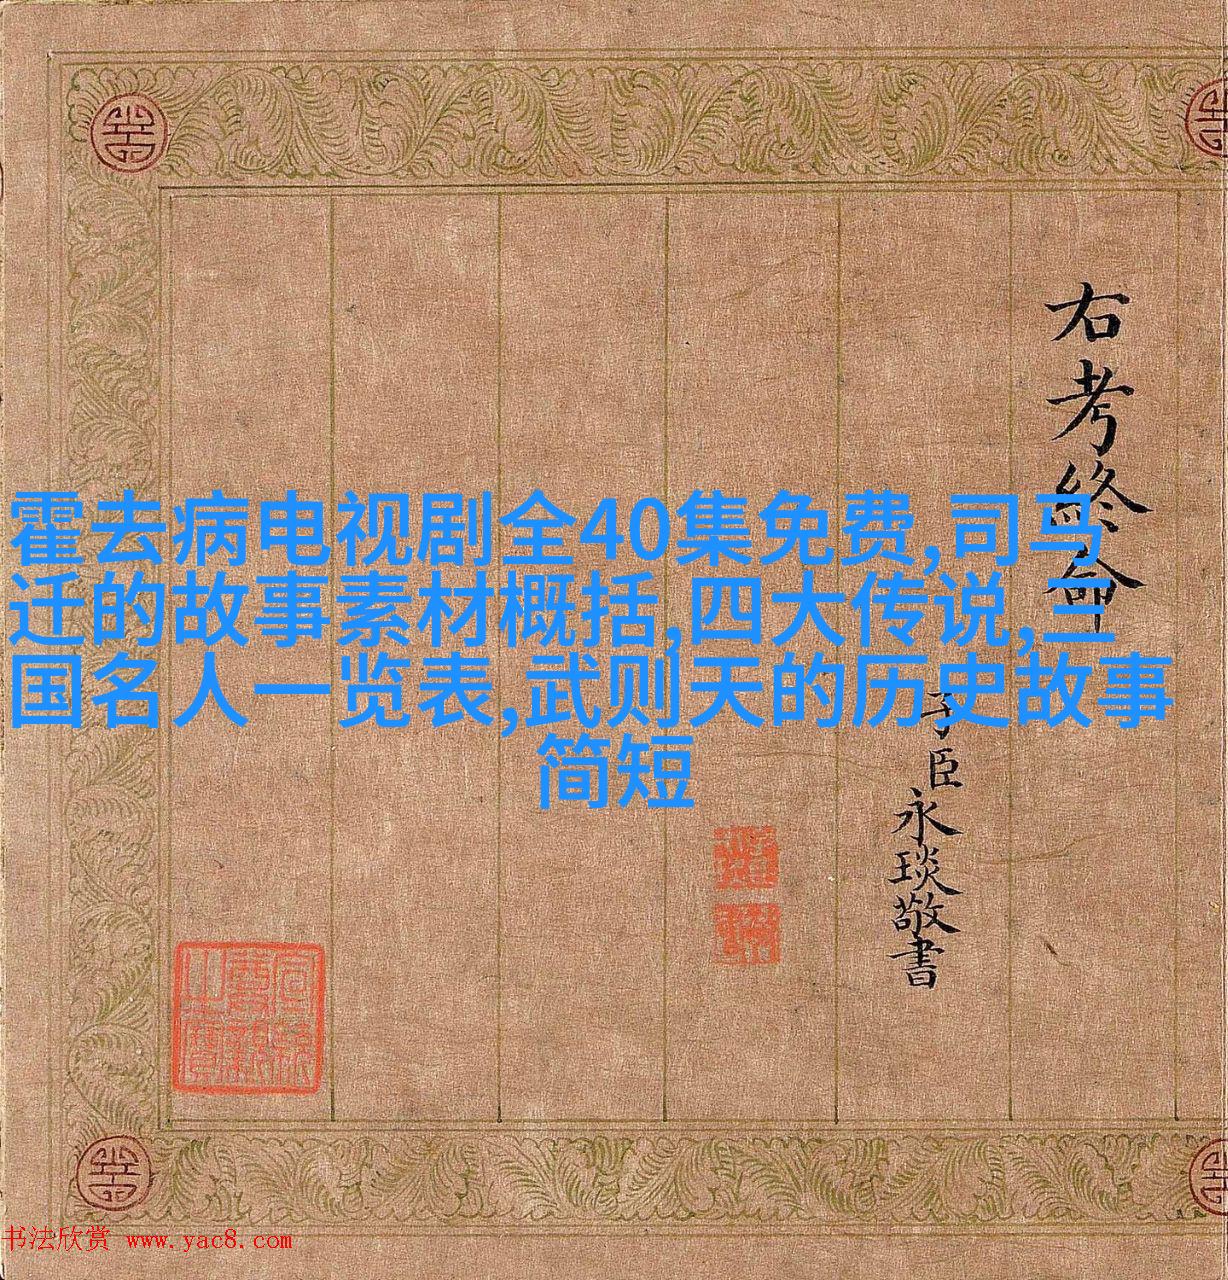 右考終命
子臣永琰敬書
霍去病电视剧全40集免费,司马
迁的故事素材概括,四大传说,三
国名人一览表,武则天的历史故事
简短
书法欣赏 www.yac8.com